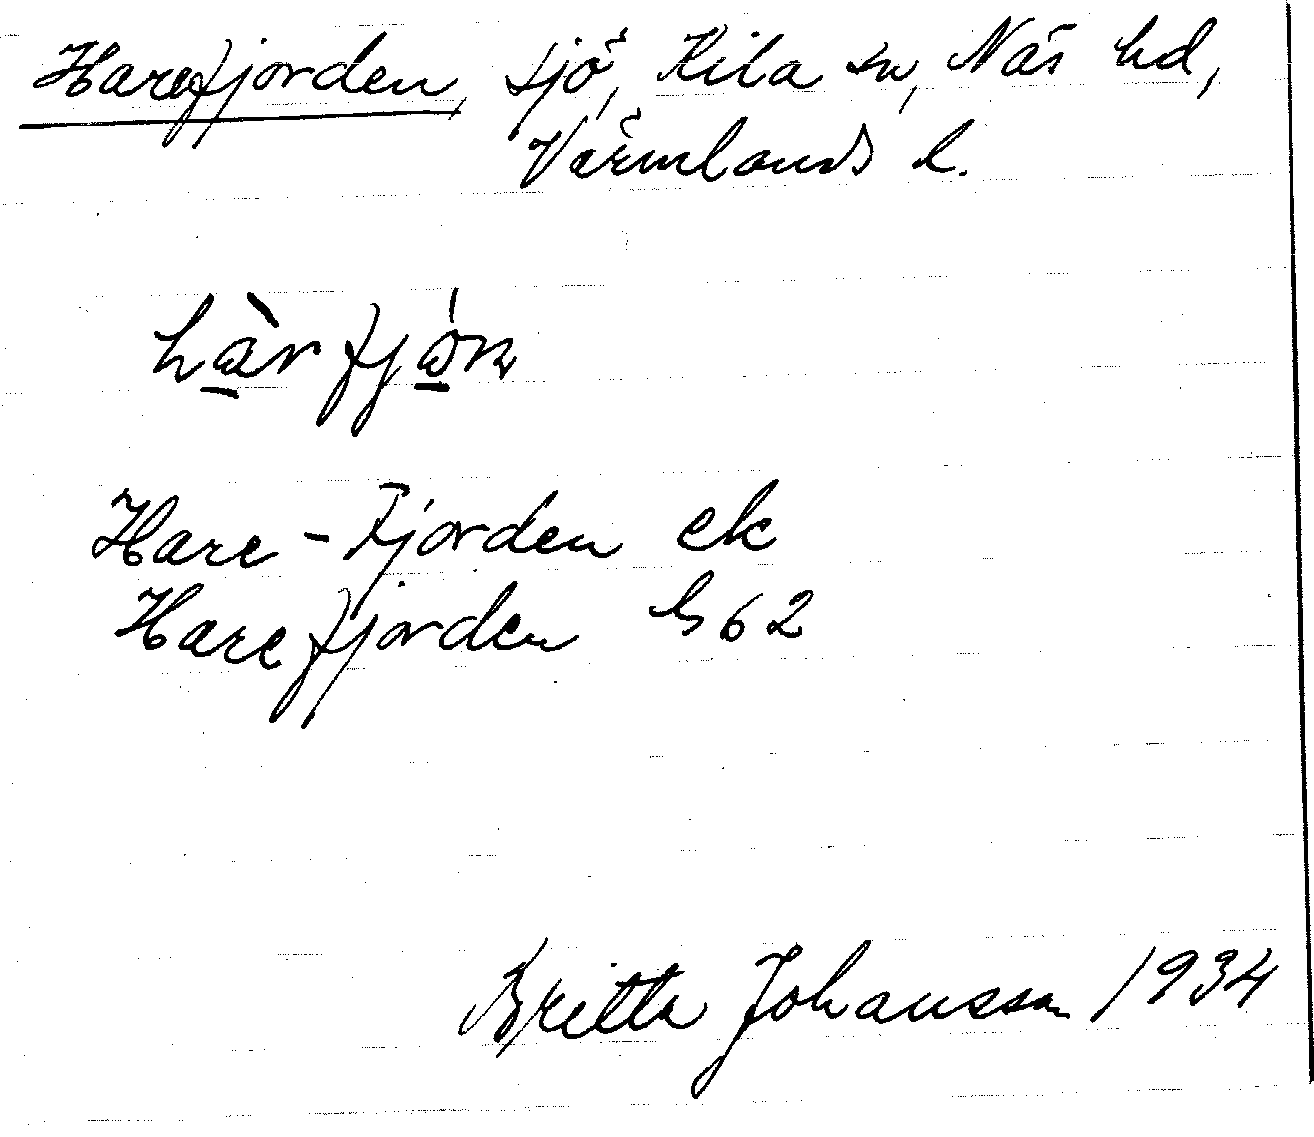 Harefjorden, sjö, Kila sn, Näs hd,
Värmlands l.
Hare-Fjorden ek
Harefjorden G62
Britta Johansson 1934